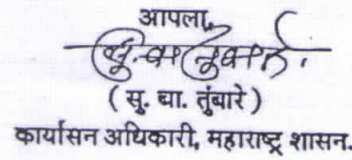 आपला,
( सु. चा. तुंबारे )
कार्यासन अधिकारी, महाराष्ट्र शासन.